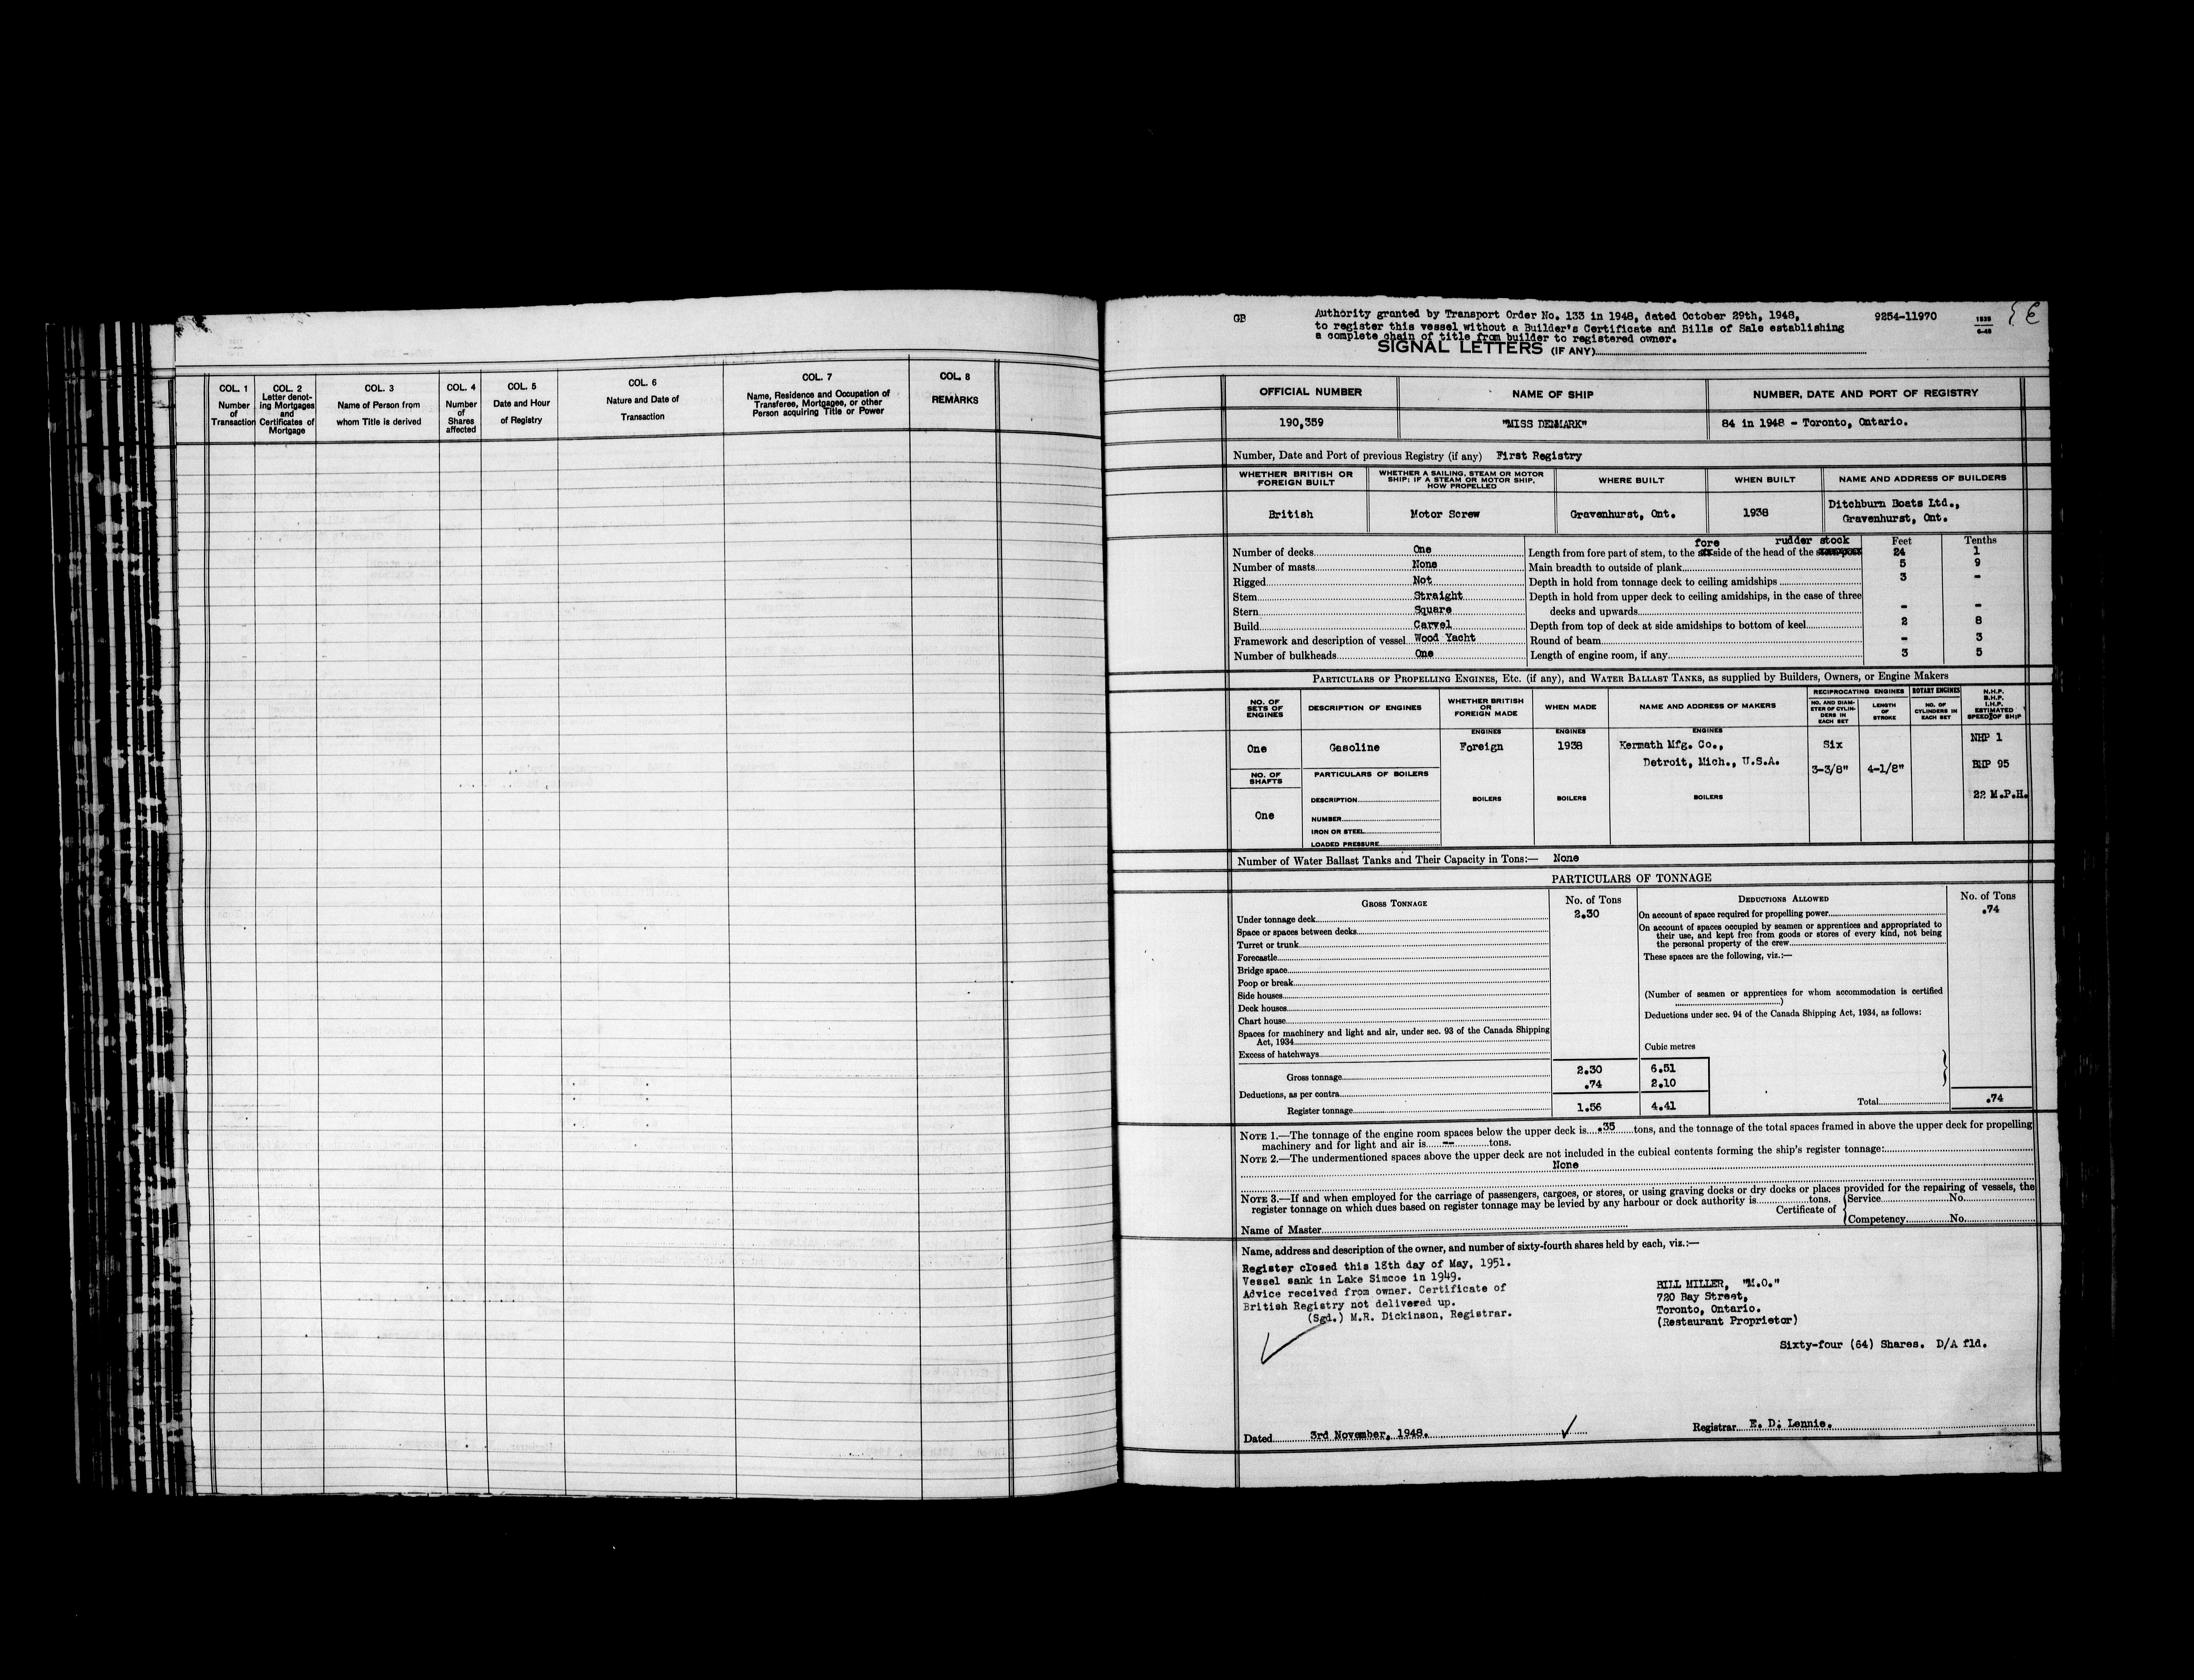 COL. 1
Number
of
Transaction
COL. 2
Letter denot-
ing Mortgages
and
Certificates of
Mortgage
COL. 3
Name of Person from
whom Title is derived
COL. 4
Number
of
Shares
affected
COL. 5
Date and Hour
of Registry
COL. 6
Nature and Date of
Transaction
COL. 7
Name, Residence and Occupation of
Transferee, Mortgagee, or other
Person acquiring Title or Power
COL. 8
REMARKS
GB
Authority granted by Transport Order No. 133 in 1948, dated October 29th, 1948,
to register this vessel without a Builder's Certificate and Bills of Sale establishing
a complete chain of title from builder to registered owner.
9254-11970
SIGNAL LETTERS (IF ANY)
OFFICIAL NUMBER NAME OF SHIP NUMBER, DATE AND PORT OF REGISTRY
190,359 "MISS DENMARK" 84 in 1948 - Toronto, Ontario.
Number, Date and Port of previous Registry (if any) First Registry
WHETHER BRITISH OR
FOREIGN BUILT
WHETHER A SAILING, STEAM OR MOTOR
SHIP; IF A STEAM OR MOTOR SHIP,
HOW PROPELLED
WHERE BUILT
WHEN BUILT
NAME AND ADDRESS OF BUILDERS
British
Motor Screw
Gravenhurst, Ont.
1938
Ditchburn Boats Ltd.,
Gravenhurst, Ont.
Number of decks One
Number of masts None
Rigged Not
Stem Straight
Stern Square
Build Carvel
Framework and description of vessel Wood Yacht
Number of bulkheads One
Feet Tenths
fore rudder stock
Length from fore part of stem, to the side of the head of the 24 1
Main breadth to outside of plank 5 9
Depth in hold from tonnage deck to ceiling amidships 3 -
Depth in hold from upper deck to ceiling amidships, in the case of three
decks and upwards - -
Depth from top of deck at side amidships to bottom of keel 2 8
Round of beam - 3
Length of engine room, if any 3 5
PARTICULARS OF PROPELLING ENGINES, ETC. (if any), and WATER BALLAST TANKS, as supplied by Builders, Owners, or Engine Makers
NO. OF
SETS OF
ENGINES
DESCRIPTION OF ENGINES
WHETHER BRITISH
OR
FOREIGN MADE
WHEN MADE
NAME AND ADDRESS OF MAKERS
RECIPROCATING ENGINES
NO. AND DIAM-
ETER OF CYLIN-
DERS IN
EACH SET
LENGTH
OF
STROKE
ROTARY ENGINES
NO. OF
CYLINDERS IN
EACH SET
N.H.P.
B.H.P.
I.H.P.
ESTIMATED
SPEED OF SHIP
ENGINES ENGINES ENGINES
One Gasoline Foreign 1938 Kermath Mfg. Co., Six NHP 1
Detroit, Mich., U.S.A. 3-3/8" 4-1/8" BHP 95
22 M.P.H.
NO. OF
SHAFTS
One
PARTICULARS OF BOILERS
DESCRIPTION
NUMBER
IRON OR STEEL
LOADED PRESSURE
BOILERS BOILERS BOILERS
Number of Water Ballast Tanks and Their Capacity in Tons:— None
PARTICULARS OF TONNAGE
GROSS TONNAGE No. of Tons
Under tonnage deck 2.30
Space or spaces between decks
Turret or trunk
Forecastle
Bridge space
Poop or break
Side houses
Deck houses
Chart house
Spaces for machinery and light and air, under sec. 93 of the Canada Shipping
Act, 1934
Excess of hatchways
Cubic metres
Gross tonnage 2.30 6.51
Deductions, as per contra .74 2.10
Register tonnage 1.56 4.41
DEDUCTIONS ALLOWED No. of Tons
On account of space required for propelling power .74
On account of spaces occupied by seamen or apprentices and appropriated to
their use, and kept free from goods or stores of every kind, not being
the personal property of the crew
These spaces are the following, viz.:—
(Number of seamen or apprentices for whom accommodation is certified
)
Deductions under sec. 94 of the Canada Shipping Act, 1934, as follows:
Total .74
NOTE 1.—The tonnage of the engine room spaces below the upper deck is .35 tons, and the tonnage of the total spaces framed in above the upper deck for propelling
machinery and for light and air is -- tons.
NOTE 2.—The undermentioned spaces above the upper deck are not included in the cubical contents forming the ship's register tonnage:
None
NOTE 3.—If and when employed for the carriage of passengers, cargoes, or stores, or using graving docks or dry docks or places provided for the repairing of vessels, the
register tonnage on which dues based on register tonnage may be levied by any harbour or dock authority is tons.
Certificate of
Service No.
Competency No.
Name of Master
Name, address and description of the owner, and number of sixty-fourth shares held by each, viz.:—
Register closed this 18th day of May, 1951.
Vessel sank in Lake Simcoe in 1949.
Advice received from owner. Certificate of
British Registry not delivered up.
(Sgd.) M.R. Dickinson, Registrar.
BILL MILLER, "M.O."
720 Bay Street,
Toronto, Ontario.
(Restaurant Proprietor)
Sixty-four (64) Shares. D/A fld.
Dated 3rd November, 1948.
Registrar E. D. Lennie.